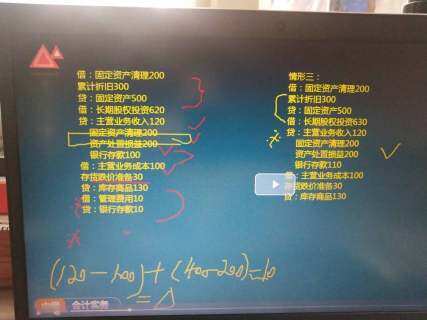 借：固定资产清理200
累计折旧300
贷：固定资产500
借：长期股权投资620
贷：主营业务收入120
固定资产清理200
资产处置损益200
银行存款100
借：主营业务成本100
存货跌价准备30
贷：库存商品130
借：管理费用10
贷：银行存款10
情形三：
借：固定资产清理200
累计折旧300
贷：固定资产500
借：长期股权投资630
贷：主营业务收入120
固定资产清理200
资产处置损益200
银行存款110
借：主营业务成本100
存货跌价准备30
贷：库存商品130
(120-100)+(400-200)=
会计实务